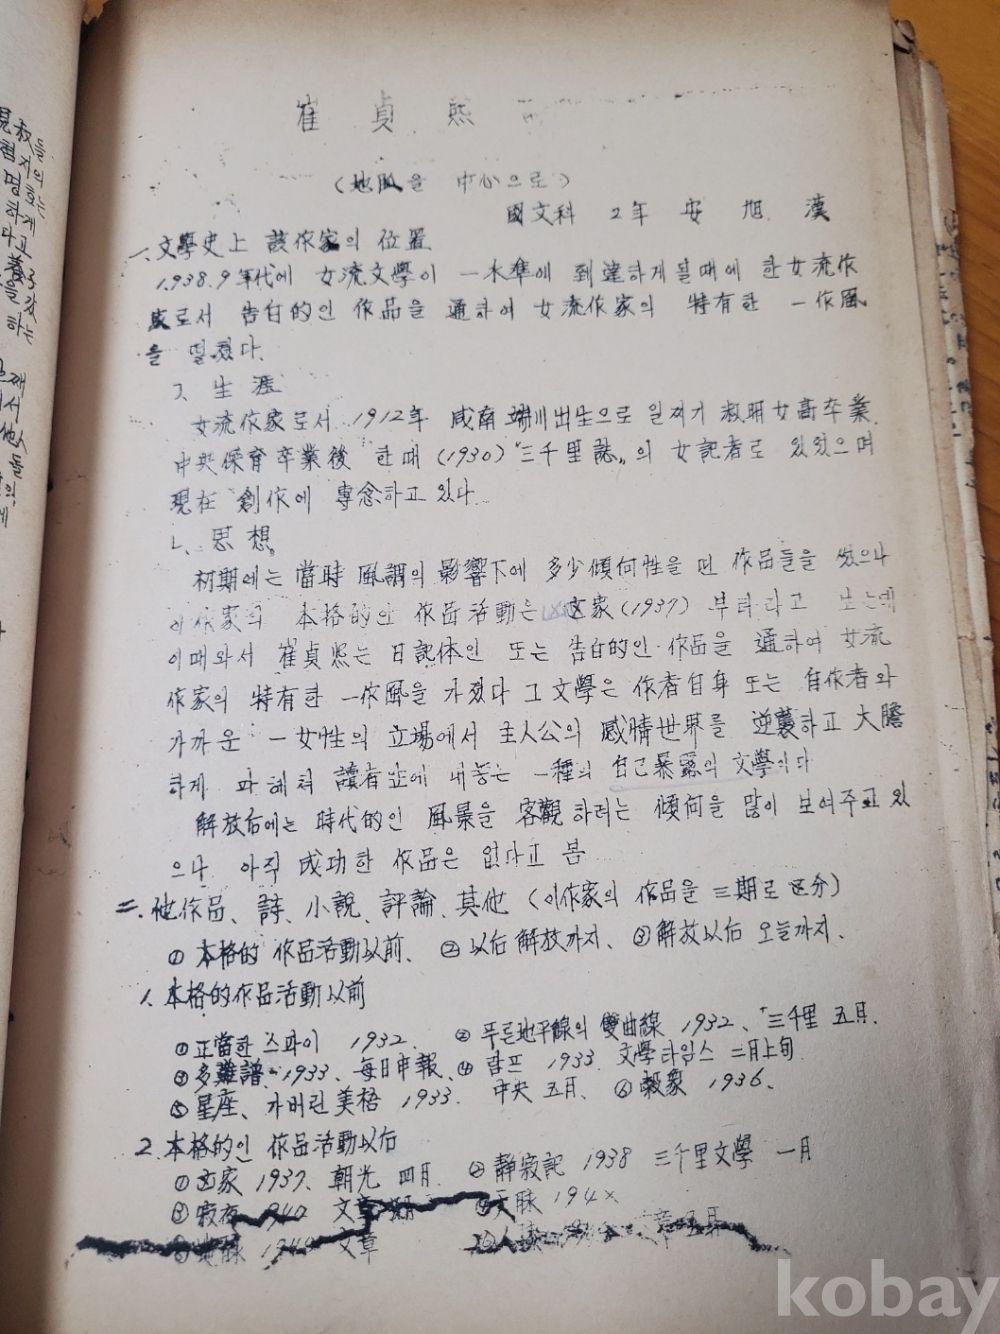 崔貞熙
(地脈을 中心으로)
國文科 2年 安旭漢
一. 文學史上 該作家의 位置
1938.9年代에 女流文學이 一水準에 到達하게 될때에 한女流作
家로서 告白的인 作品을 通하여 女流作家의 特有한 一作風
을 떨쳤다.
ㄱ. 生涯
女流作家로서 1912年 咸南 端川出生으로 일찌기 淑明女高卒業
中央保育卒業後 한때 (1930) "三千里誌"의 女記者로 있었으며
現在 創作에 專念하고 있다.
ㄴ. 思想
初期에는 當時 風調의 影響下에 多少傾向性을 띤 作品들을 썼으나
이作家의 本格的인 作品活動은 凶家(1937) 부터라고 보는데
이때와서 崔貞熙는 日記体인 또는 告白的인 作品을 通하여 女流
作家의 特有한 一作風을 가졌다 그文學은 作者自身 또는 自作者와
가까운 一女性의 立場에서 主人公의 感情世界를 逆襲하고 大膽
하게 파헤쳐 讀者앞에 내놓는 一種의 自己暴露의 文學이다
解放后에는 時代的인 風景을 客觀하려는 傾向을 많이 보여주고 있
으나 아직 成功한 作品은 없다고 봄
二. 他作品、詩、小說、評論、其他 (이作家의 作品을 三期로 区分)
① 本格的 作品活動以前、② 以后 解放까지、③ 解放以后 오늘까지、
1. 本格的作品活動以前
① 正當한 스파이 1932. ② 푸른地平線의 雙曲線 1932、「三千里 五月.
③ 多難譜 1933、每日申報、④ 람프 1933 文學타임스 二月上旬
⑤ 星座、가버린 美梧 1933. 中央 五月、⑥ 穀象 1936.
2. 本格的인 作品活動以后
① 凶家 1937、朝光 四月 ② 靜寂記 1938 三千里文學 一月
③ 寂夜 1940 文章 ④ 天脈 194×
⑤ 地脈 1940 文章 ⑥ 人 五月
見叔들
kobay